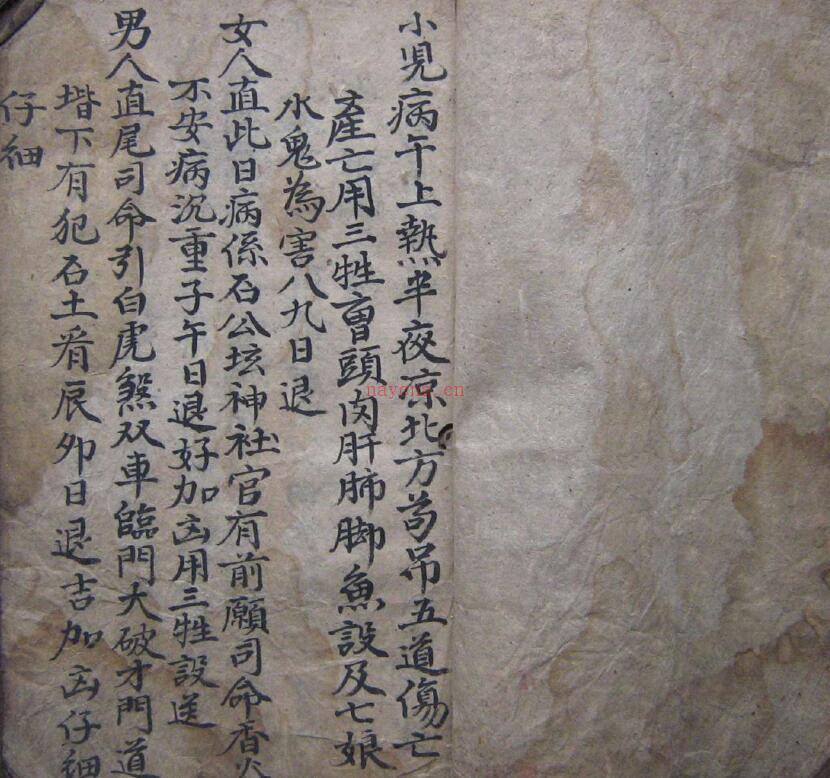 小児病午上熱半夜凉北方苟吊五道傷亡
產亡用三牲曹頭肉肝肺脚魚設及七娘
水鬼為害八九日退
女人直此日病係石公坛神社官有前願司命香火
不安病沉重子午日退好加凶用三牲設送
男人直尾司命引白虎煞双車臨門大破才門道
堦下有犯石土看辰卯日退吉加凶仔細
仔細
nayona.cn